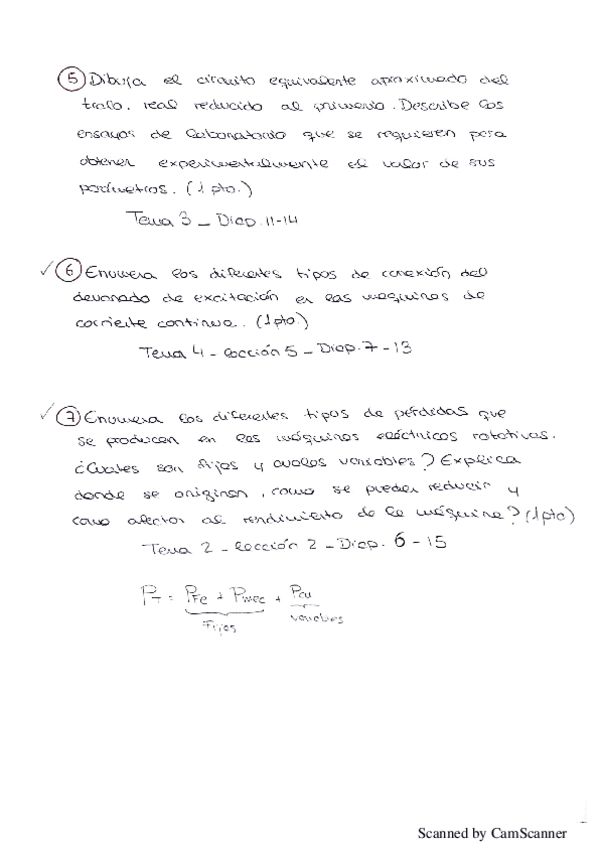 ⑤ Dibuja el circuito equivalente aproximado del
trafo. real reducido al primario. Describe los
ensayos de laboratorio que se requieren para
obtener experimentalmente el valor de sus
parámetros. (1 pto.)
Tema 3 _ Diap. 11-14
✓ ⑥ Enumera los diferentes tipos de conexión del
devanado de excitación en las máquinas de
corriente continua. (1pto.)
Tema 4 - Lección 5 - Diap. 7 - 13
✓ ⑦ Enumera los diferentes tipos de pérdidas que
se producen en las máquinas eléctricas rotativas.
¿Cuales son fijas y cuales variables? Explica
donde se originan, como se pueden reducir y
como afectan al rendimiento de la máquina? (1pto)
Tema 2 - Lección 2 - Diap. 6 - 15
PT = PFe + Pmec + Pcu
Fijas variables
Scanned by CamScanner